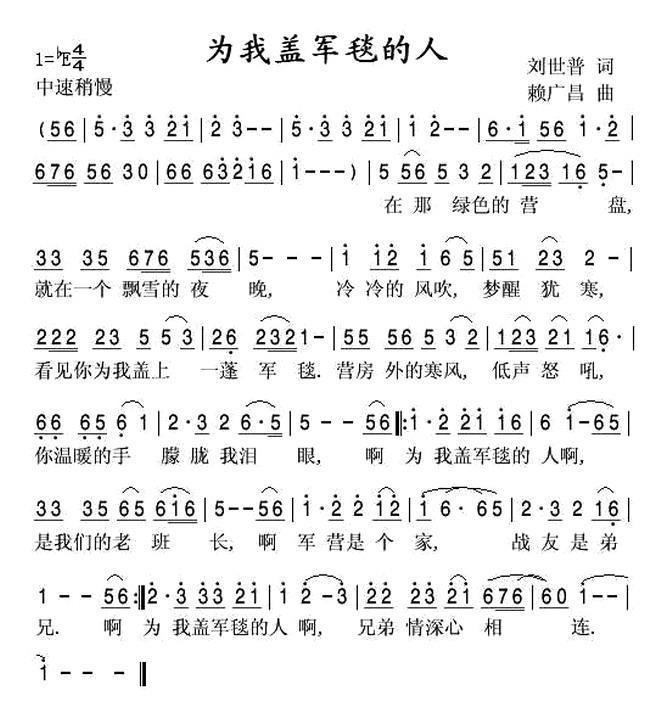 为我盖军毯的人
1=♭E 4/4
刘世普 词
中速稍慢
赖广昌 曲
(56 | 5·3 3 21 | 2 3-- | 5·3 3 21 | 1 2-- | 6·1 56 1·2 |
676 56 30 | 66 63216 | 1---) | 5 56 5 3 2 | 123 16 5- |
在 那 绿色的 营 盘,
33 35 676 536 | 5- - - | 1 12 1 6 5 | 51 23 2 - |
就在一个 飘雪的 夜 晚, 冷 冷的 风吹, 梦醒 犹 寒,
222 23 5 5 3 | 26 2321- | 55 56 5 3 2 | 123 21 16· |
看见你为我盖上 一蓬 军 毯. 营房 外的寒风, 低声 怒 吼,
66 65 6 1 | 2·3 2 6·5 | 5 - - 56 |: 1·2 21 16 | 6 1-65 |
你温暖的手 朦胧 我泪 眼, 啊 为 我盖军毯的 人啊,
33 35 65 616 | 5--56 | 1·2 2 12 | 1 6· 65 | 2·3 2 16 |
是我们的老 班 长, 啊 军 营是 个 家, 战 友 是 弟
1 - - 56 :| 2·3 33 21 | 1 2 -3 | 22 23 21 676 | 60 1-- |
兄. 啊 为 我盖军毯的人 啊, 兄弟 情深心 相 连.
1 -- -- ‖